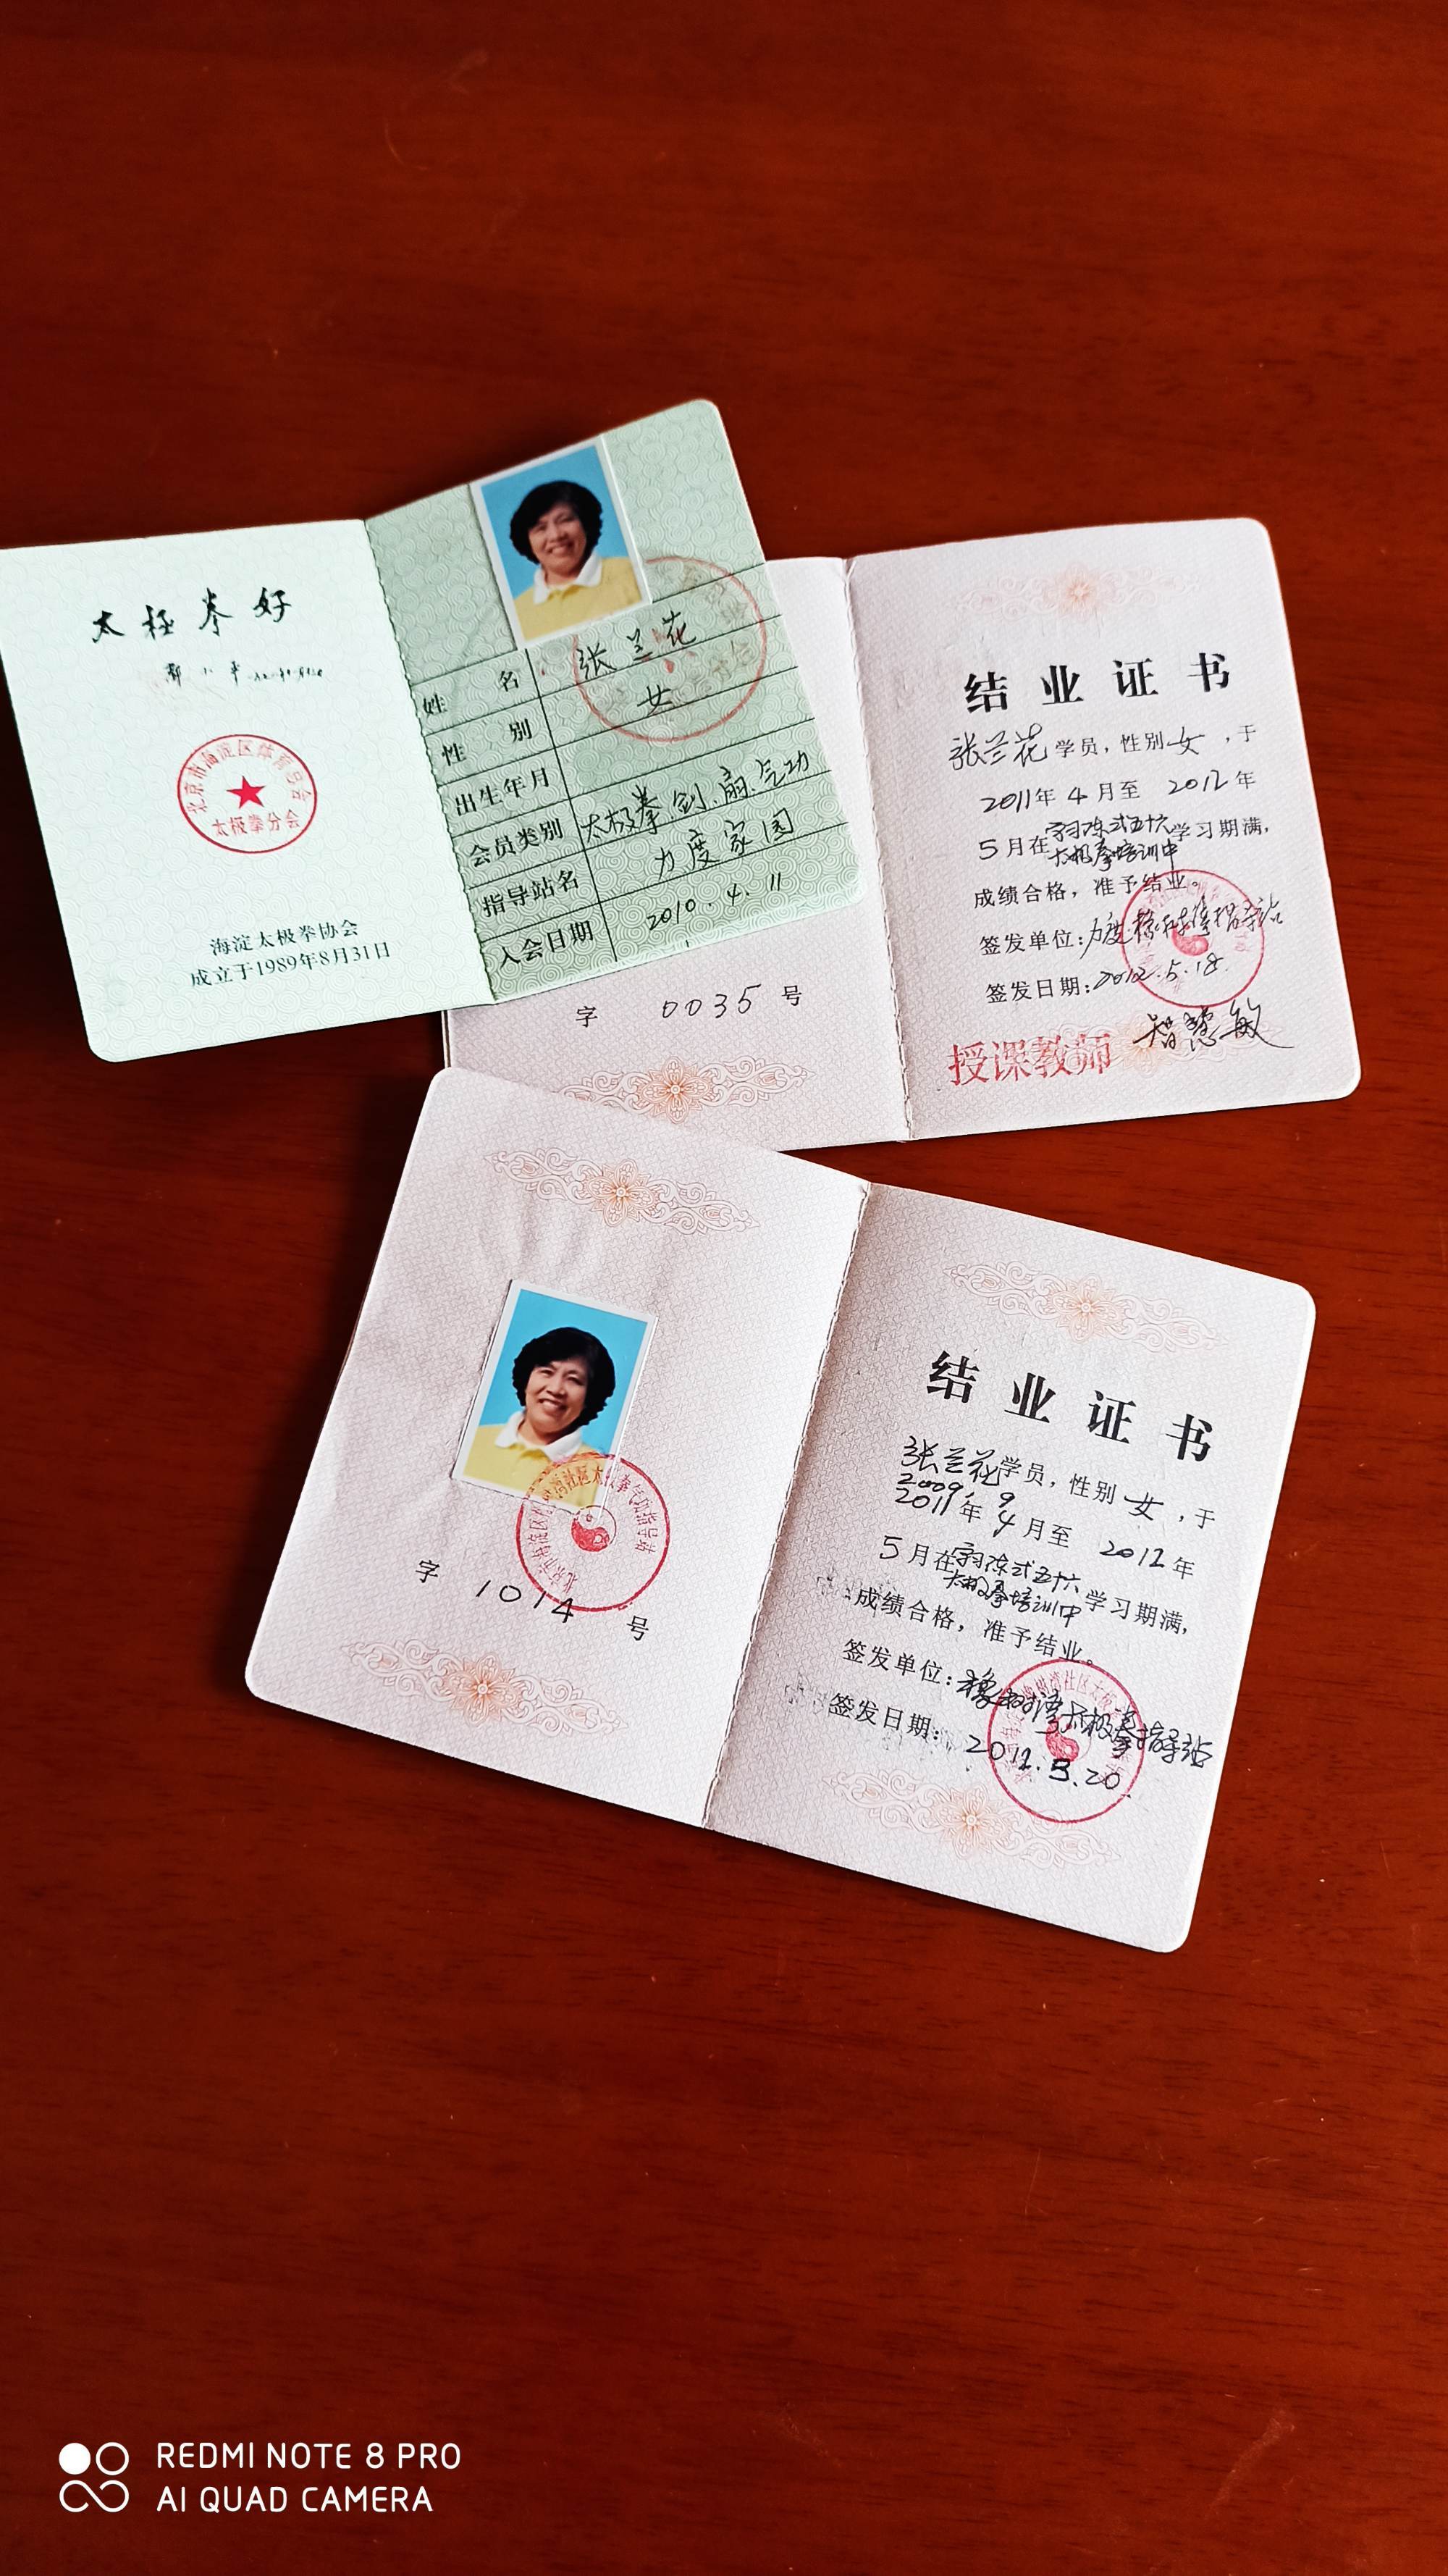 太极拳好
北京市海淀区体育总会
太极拳分会
海淀太极拳协会
成立于1989年8月31日
姓 名 张兰花
性 别 女
出生年月
会员类别 太极拳.剑.扇.气功
指导站名 力度家园
入会日期 2010.4.11
字 0035 号
结业证书
张兰花学员，性别女，于
2011年4月至 2012年
5月在学习陈式五十六太极拳培训中学习期满，
成绩合格，准予结业。
签发单位：
签发日期：2012.5.18
授课教师 智慧敏
字 1014 号
结业证书
张兰花学员，性别女，于
2009. 9
2011年4月至 2012年
5月在学习陈式五十六太极拳培训中学习期满，
成绩合格，准予结业。
签发单位：橡树湾太极拳指导站
签发日期：2012.5.20
REDMI NOTE 8 PRO
AI QUAD CAMERA